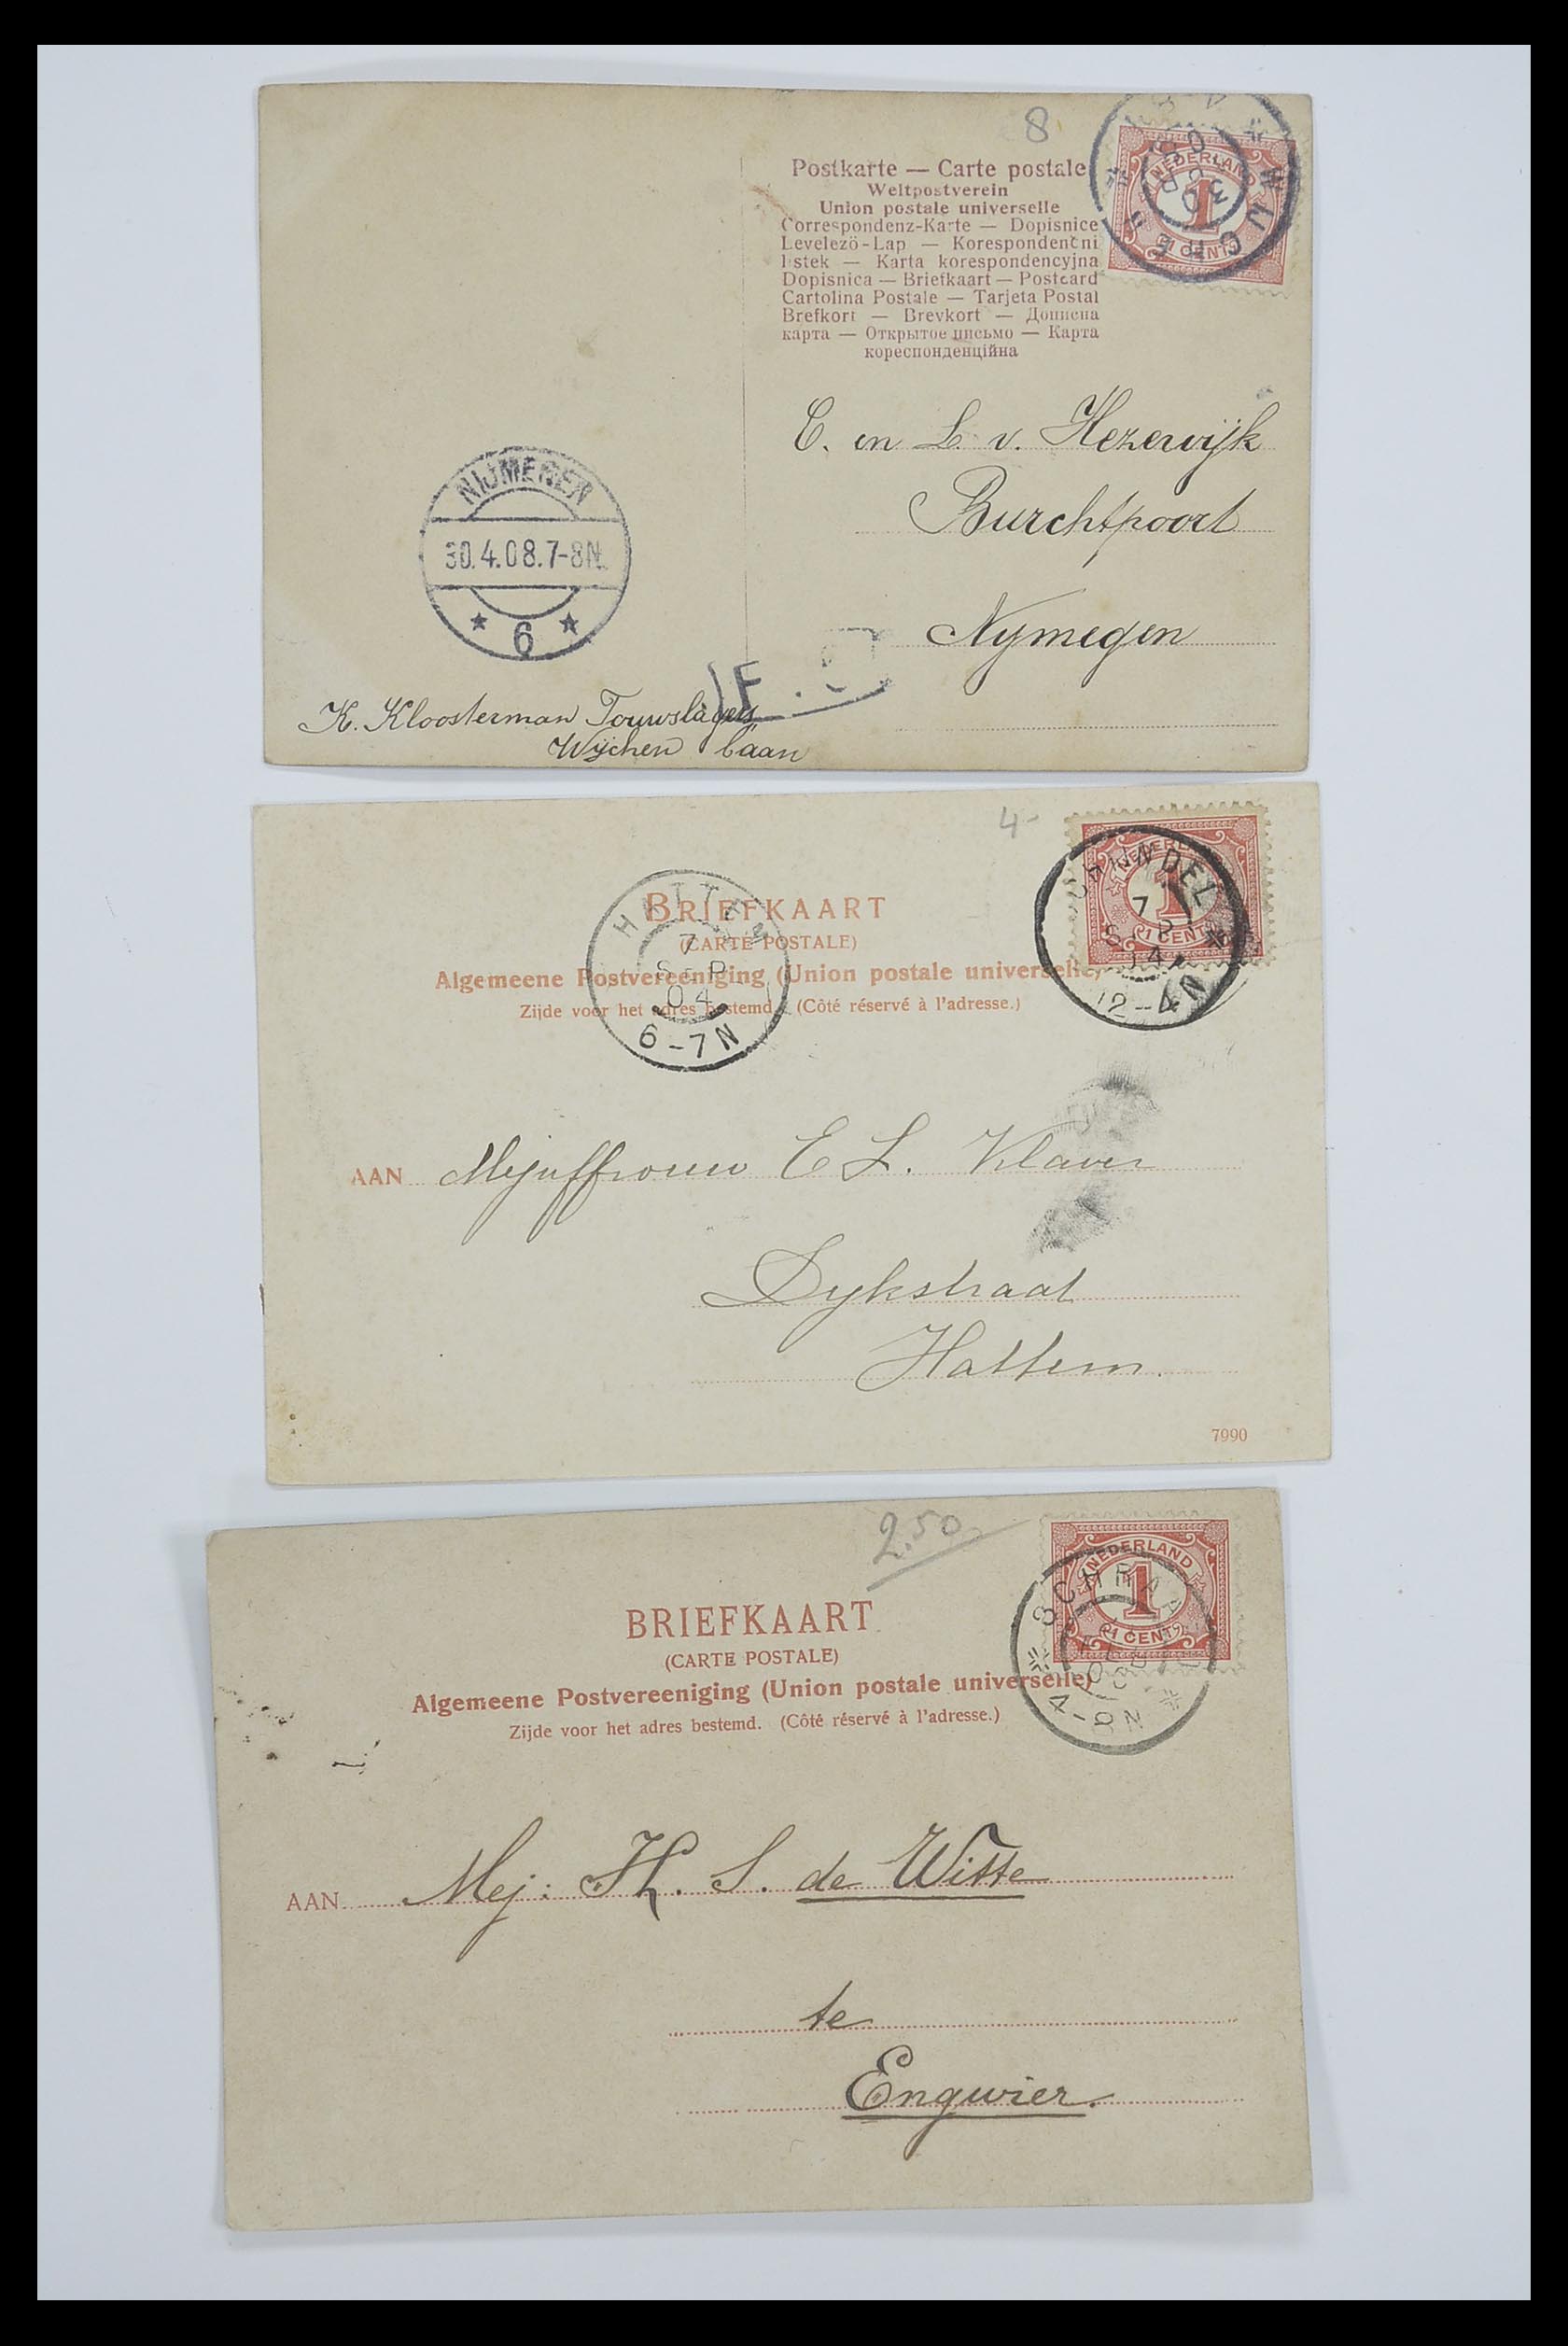 8
NEDERLAND
1
1 CENT
WIJCHEN
30
Postkarte — Carte postale
Weltpostverein
Union postale universelle
Correspondenz-Karte — Dopisnice
Levelező-Lap — Korespondenčni
listek — Karta korespondencyjna
Dopisnica — Briefkaart — Postcard
Cartolina Postale — Tarjeta Postal
Brefkort — Brevkort — Дописна
карта — Открытое письмо — Карта
кореспонденційна
C. en L. v. Hezewijk
Burchtpoort
Nymegen
NIJMEGEN
30.4.08.7-8N.
6
K. Kloosterman Touwslagers
Wijchen laan
4-
NEDERLAND
1
1 CENT
7
12-4N
BRIEFKAART
(CARTE POSTALE)
Algemeene Postvereeniging (Union postale universelle)
Zijde voor het adres bestemd. (Côté réservé à l'adresse.)
HATTEM
7
SEP
04
6-7N
AAN Mejuffrouw E L. Klaver
Dykstraat
Hattem.
7990
2.50
NEDERLAND
1
1 CENT
BRIEFKAART
(CARTE POSTALE)
Algemeene Postvereeniging (Union postale universelle)
Zijde voor het adres bestemd. (Côté réservé à l'adresse.)
AAN Mej: H. S. de Witte
te
Engwier.